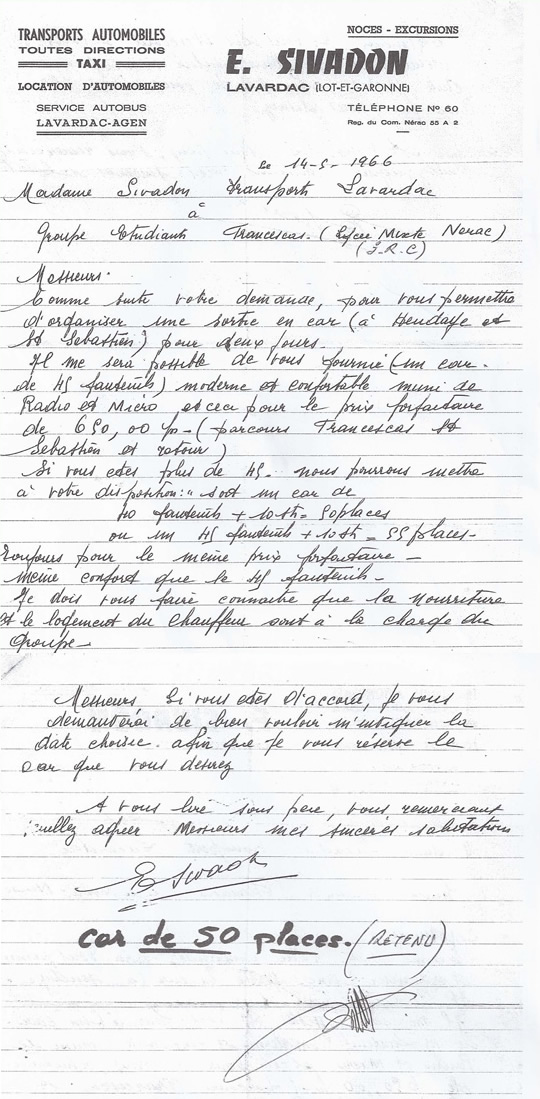 TRANSPORTS AUTOMOBILES
TOUTES DIRECTIONS
TAXI
LOCATION D'AUTOMOBILES
SERVICE AUTOBUS
LAVARDAC-AGEN
NOCES - EXCURSIONS
E. SIVADON
LAVARDAC (LOT-ET-GARONNE)
TÉLÉPHONE Nº 60
Reg. du Com. Nérac 55 A 2
Le 14-5-1966
Madame Sivadon Transports Lavardac
à
Groupe Etudiants Francescas. (Lycée Mixte Nerac)
(J.R.C)
Messieurs.
Comme suite votre demande, pour vous permettre
d'organiser une sortie en car (à Hendaye et
St Sebastien) pour deux jours.
Il me sera possible de vous fournir (un car.
de 45 fauteuils) moderne et confortable muni de
Radio et Micro et ceci pour le prix forfaitaire
de 650,00 - (parcours Francescas St
Sebastien et retour)
Si vous etes plus de 45. nous pourrons mettre
à votre disposition: soit un car de
40 fauteuils + 10 st = 50 places
ou un 45 fauteuils + 10 st = 55 places-
Toujours pour le même prix forfaitaire -
même confort que le 45 fauteuils -
Je dois vous faire connaitre que la nourriture
et le logement du chauffeur sont à la charge du
Groupe -
Messieurs Si vous etes d'accord, je vous
demanderai de bien vouloir m'indiquer la
date choisie. afin que je vous réserve le
car que vous desirez
A vous lire sous peu, vous remerciant
veuillez agréer Messieurs mes sincères salutations
E Sivadon
car de 50 places. (RETENU)